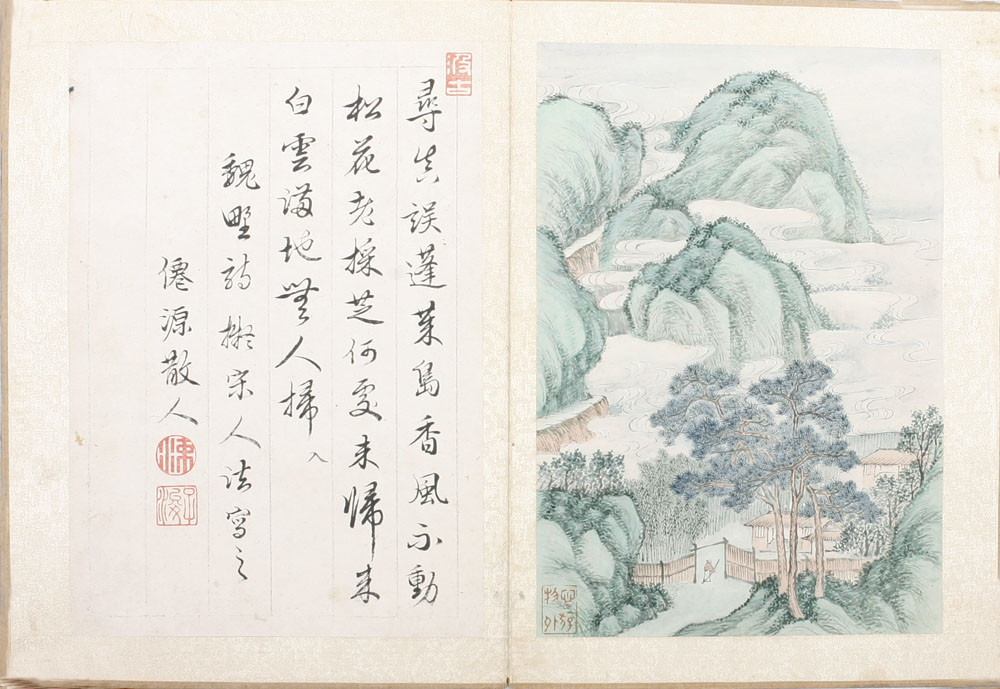 尋真誤蓬萊島香風不動
松花老採芝何處未歸來
白雲滿地無人掃入
魏野詩擬宋人法寫之
僊源散人